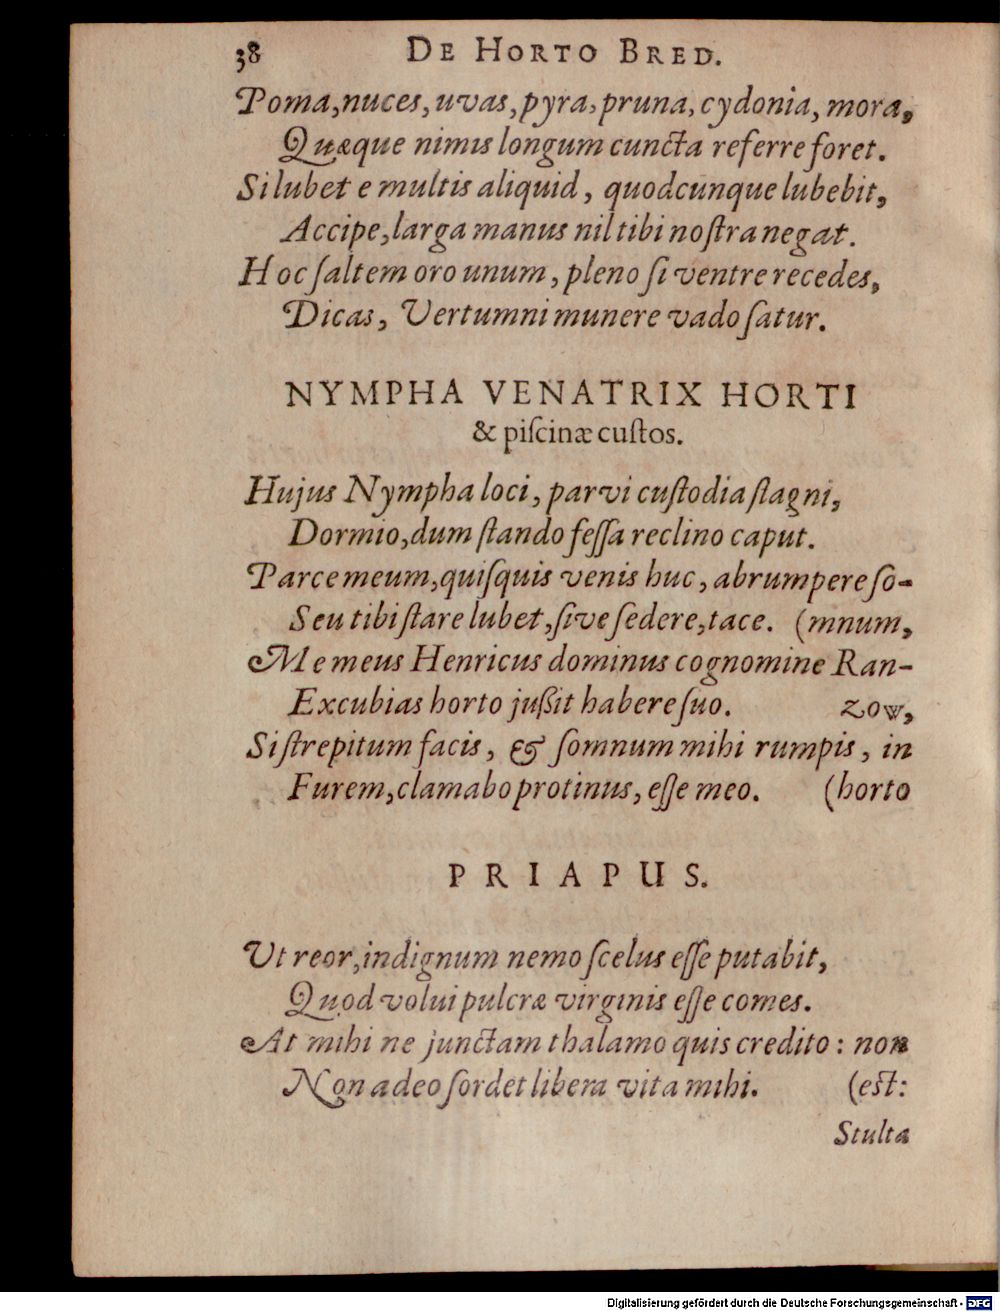 38 DE HORTO BRED.
Poma, nuces, uvas, pyra, pruna, cydonia, mora,
Quæque nimis longum cuncta referre foret.
Si lubet e multis aliquid, quodcunque lubebit,
Accipe, larga manus nil tibi noſtra negat.
Hoc ſaltem oro unum, pleno ſi ventre recedes,
Dicas, Vertumni munere vado ſatur.
NYMPHA VENATRIX HORTI
& piſcinæ cuſtos.
Hujus Nympha loci, parvi cuſtodia ſtagni,
Dormio, dum ſtando feſſa reclino caput.
Parce meum, quiſquis venis huc, abrumpere ſo-
Seu tibi ſtare lubet, ſive ſedere, tace. (mnum,
Me meus Henricus dominus cognomine Ran-
Excubias horto juſsit habere ſuo. zow,
Si ſtrepitum facis, & ſomnum mihi rumpis, in
Furem, clamabo protinus, eſſe meo. (horto
PRIAPUS.
Ut reor, indignum nemo ſcelus eſſe putabit,
Quod volui pulcræ virginis eſſe comes.
At mihi ne junctam thalamo quis credito: non
Non adeo ſordet libera vita mihi. (eſt:
Stulta
Digitalisierung gefördert durch die Deutsche Forschungsgemeinschaft - DFG